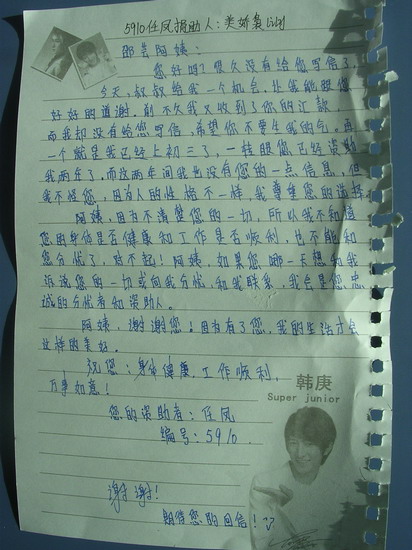 5910任凤捐助人：类娇袅lily
邵芸阿姨：
您好吗？很久没有给您写信了，
今天，叔叔给我一个机会，让我能跟您
好好的道谢。前不久我又收到了你的汇款，
而我却没有给您写信，希望你不要生我的气。再
一个就是我已经上初三了，一转眼您已经资助
我两年了，而这两年间我也没有您的一点信息，但
我不怪您，因为人的性格不一样，我尊重您的选择。
阿姨，因为不清楚您的一切，所以我不知道
您的身体是否健康和工作是否顺利，也不能和
您分忧了，对不起！阿姨，如果您哪一天想和我
诉说您的一切或向我分忧，和我联系，我会是您忠
诚的分忧者和资助人。
阿姨，谢谢您！因为有了您，我的生活才会
这样的美好。
祝您：身体健康，工作顺利，
万事如意！
韩庚
Super junior
您的资助者：任凤
编号：5910.
谢谢！
期待您的回信！